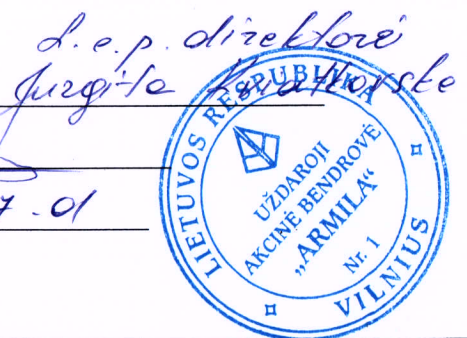 L.e.p. direktorė
Jurgita
7-01
LIETUVOS RESPUBLIKA
UŽDAROJI
AKCINĖ BENDROVĖ
„ARMILA“
Nr. 1
VILNIUS